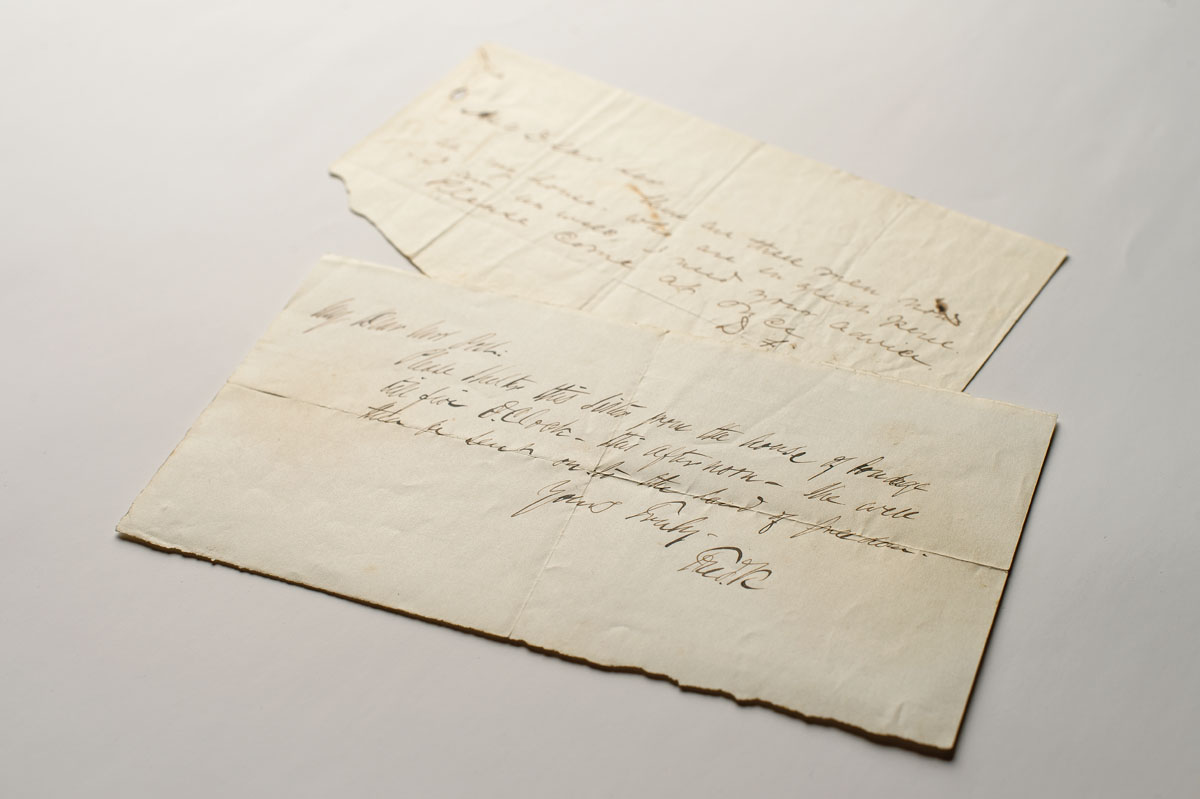 My Dear Sir
There are three men now
at my house who are in great peril.
I am unwell I need your advice
Please come at once
D. F.
My Dear Mrs Post.
Please shelter this Sister from the house of bondage
till five O'Clock - this afternoon - She will
then be sent on to the land of freedom.
Yours Truly -
Fred.k